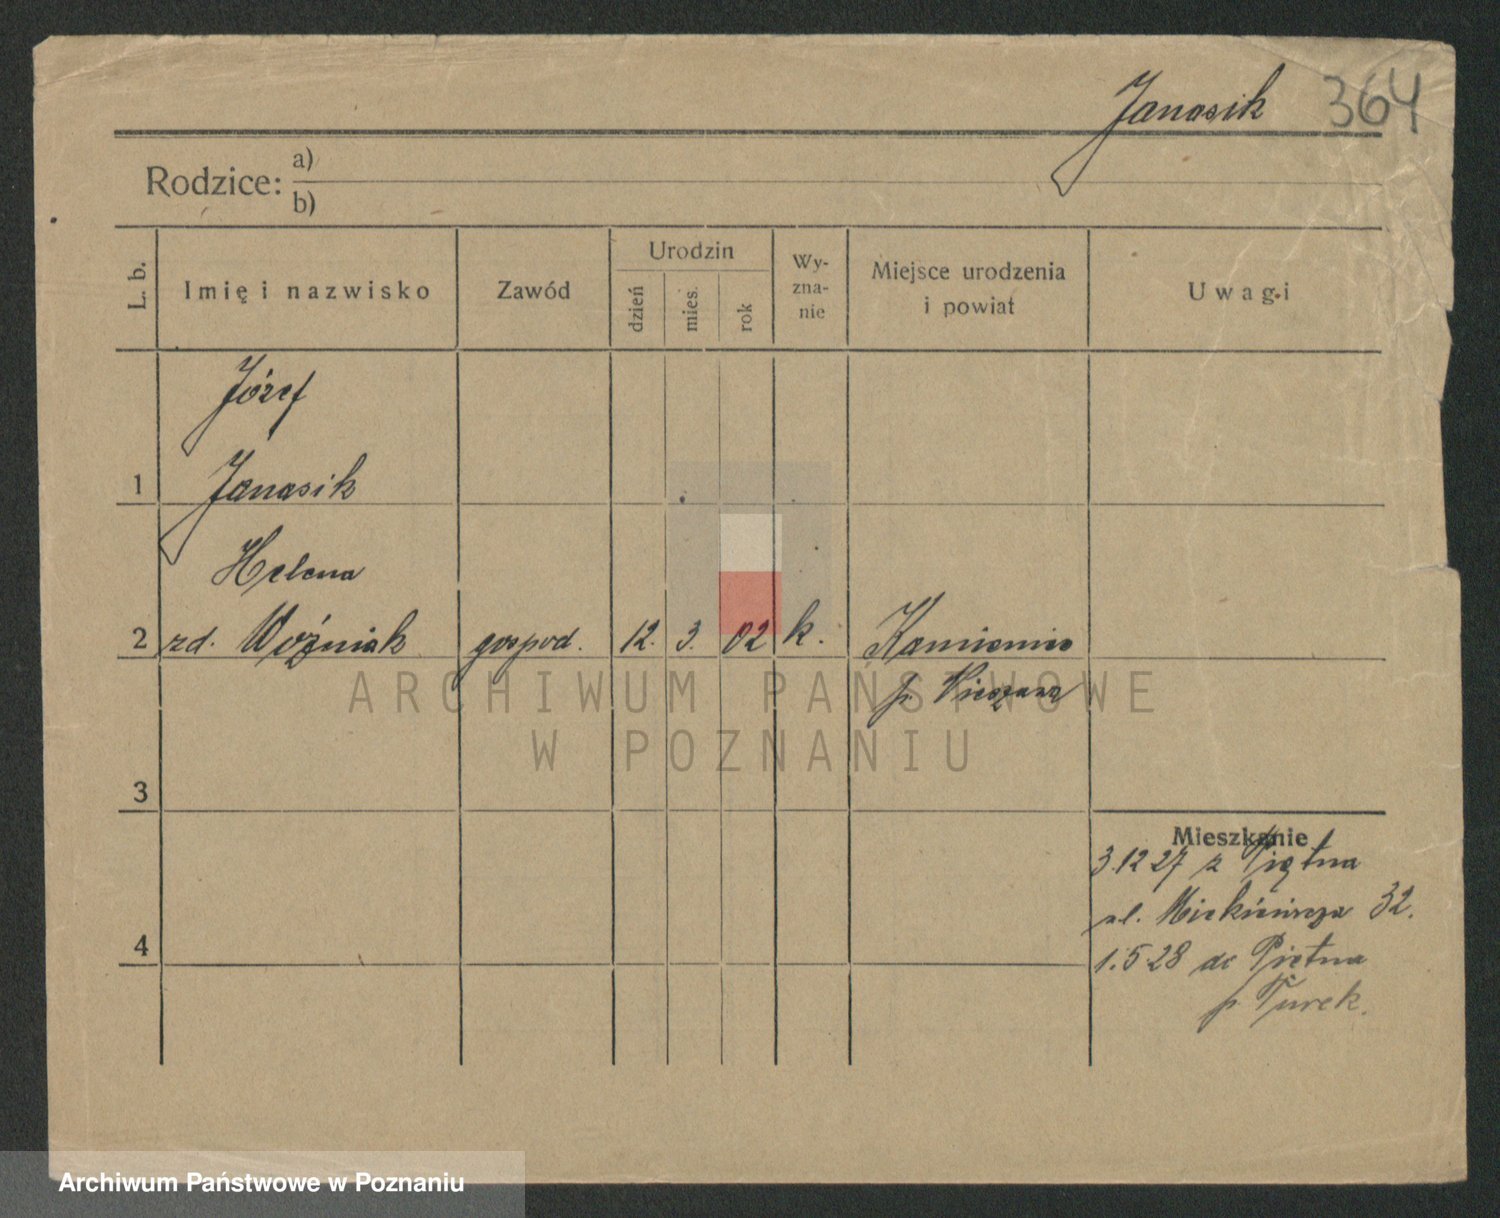 Janasik 364
Rodzice: a)
b)
L. b.
Imię i nazwisko
Zawód
Urodzin
dzień
mies.
rok
Wy-
zna-
nie
Miejsce urodzenia
i powiat
Uwagi
Józef
1 Janasik
Helena
2 zd. Woźniak gospod. 12. 3. 02 k. Kamieniec
p.
ARCHIWUM PAŃSTWOWE
W POZNANIU
3
Mieszkanie
3.12 27 z Piętna
ul. Mickiewicza 32.
4
1.5 28 do Piętna
p. Turek.
Archiwum Państwowe w Poznaniu